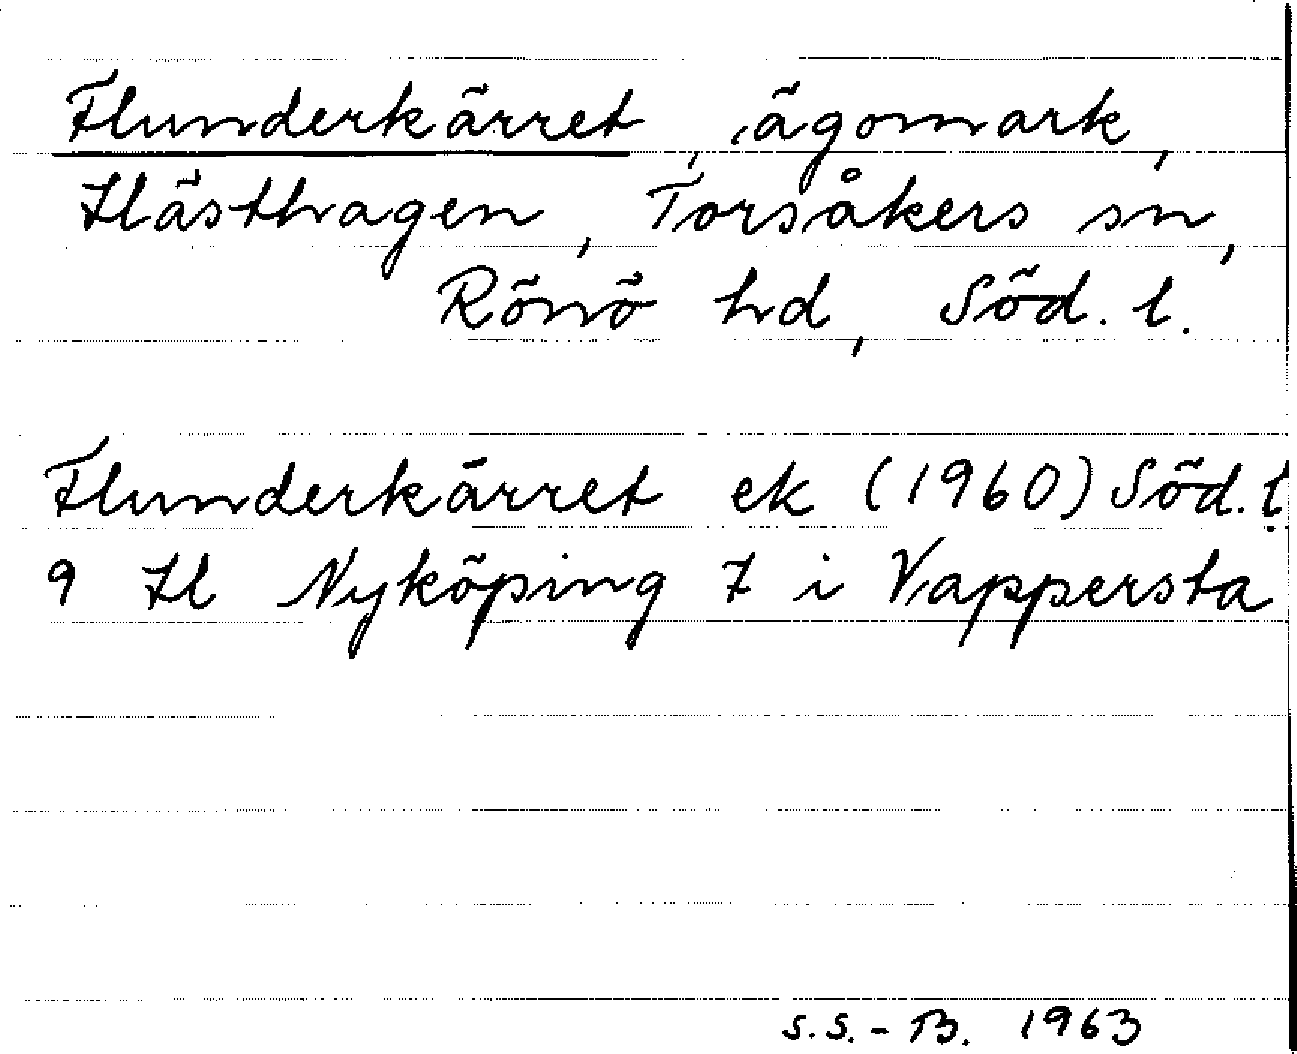 Flunderkärret, ägomark,
Hästhagen, Torsåkers sn,
Rönö hd, Söd. l.
Flunderkärret ek (1960) Söd. l.
9 H Nyköping 7 i Vappersta
S.S.-B. 1963